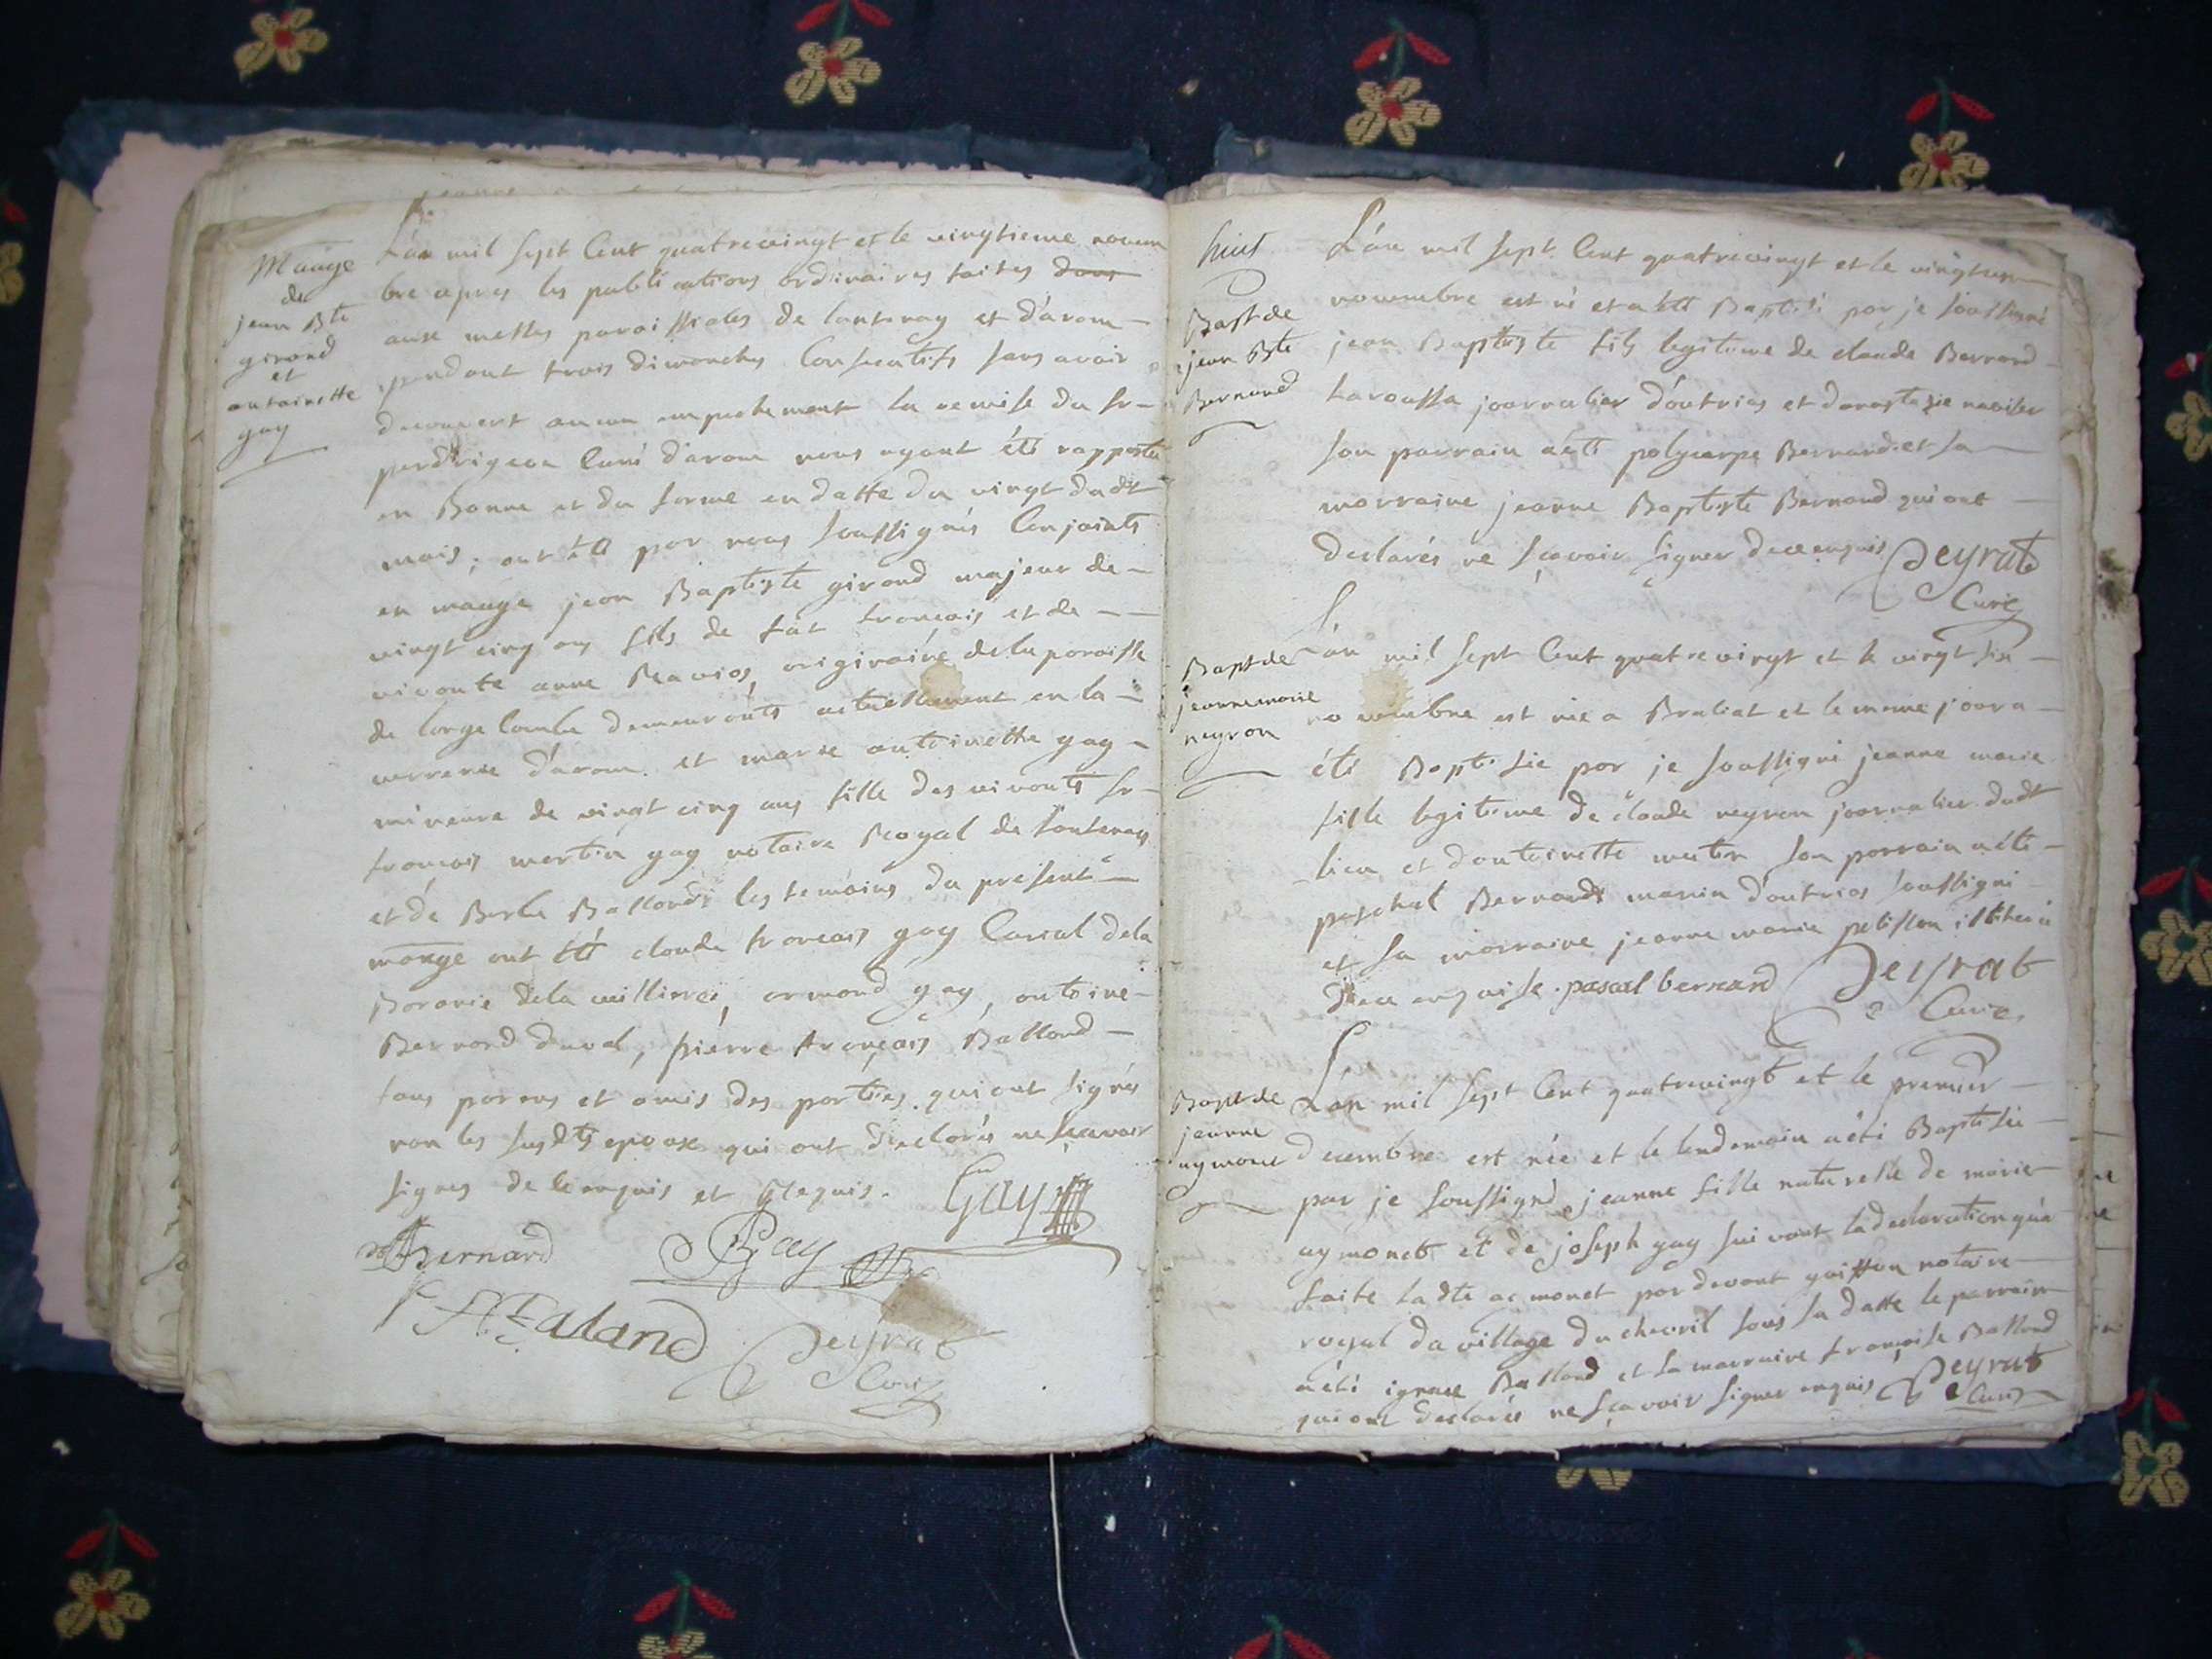 Mariage
de
jean Bte
girond
et
antoinette
gay
L'an mil sept Cent quatrevingt et le vingtieme novem
bre apres les publications ordinaires faites dans
aux messes paroissiales de lantenay et d'arom
pendant trois dimanches Consecutifs sans avoir
decouvert aucun empechement la remise du Sr
Curé d'arom nous ayant été rapportée
en Bonne et du forme en datte du vingt dudt
mois; ont été par nous soussignés Conjoints
en mariage jean Baptiste girond majeur de
vingt cinq ans fils de fut françois et de
vivante anne originaire de la paroisse
de large Combe demeurants actuellement en la
verrerie d'arom. et marie antoinette gay
mineure de vingt cinq ans fille des vivants Sr
francois martin gay notaire Royal de
et de Ballond; les temoins du present
mariage ont été claude francois gay Curial dela
Baronie dela armond gay, antoine
Bernard duval, pierre françois Balland
tous parens et amis des parties qui ont signés
non les susdts epoux qui ont declarés ne scavoir
signer de ce enquis et requis. Gay
Bernard Gay
Baland Deyrat
Curé
huit
Bapt de
jean Bte
Bernard
L'an mil sept Cent quatrevingt et le vingt un
novembre est né et a été Baptisé par je soussigné
jean Baptiste fils legitime de claude Bernard
laroussa journalier d'outrias et d'anastazie
son parrain a été polycarpe Bernard et sa
marraine jeanne Baptiste Bernard qui ont
declarés ne sçavoir signer de ce enquis Deyrat
Curé
Bapt de
jeanne marie
neyron
L'an mil sept Cent quatrevingt et le vingt six
novembre est née a Braliat et le meme jour a
été Baptisée par je soussigné jeanne marie
fille legitime de claude neyron journalier dudt
lieu et d'antoinette son parrain a été
paschal Bernard d'outrias soussigné
et sa marraine jeanne marie illiterée
de ce enquise. pascal bernard Deyrat
Curé
Bapt de
jeanne
aymonet
L'an mil sept Cent quatrevingt et le premier
decembre est née et le lendemain a été Baptisée
par je soussigné jeanne fille naturelle de marie
aymonet et de joseph gay suivant la declaration qu'a
faite ladte aymonet par devant guiffon notaire
royal du village du chevril sous sa datte le parrain
a été ignace Balland et la marraine françoise Balland
qui ont declarés ne sçavoir signer enquis Deyrat
Curé